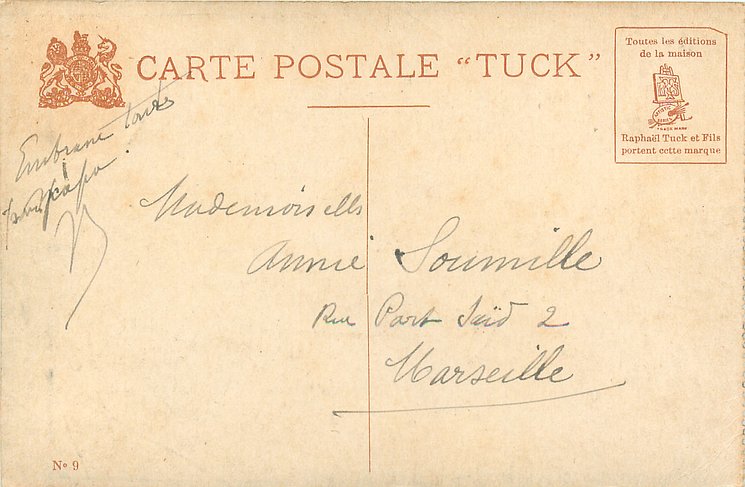 CARTE POSTALE "TUCK"
Toutes les éditions
de la maison
ARTISTIC
SERIES
TRADE MARK
Raphaël Tuck et Fils
portent cette marque
papa.
Mademoiselle
Annie Soumille
Rue Port Saïd 2
Marseille
No 9